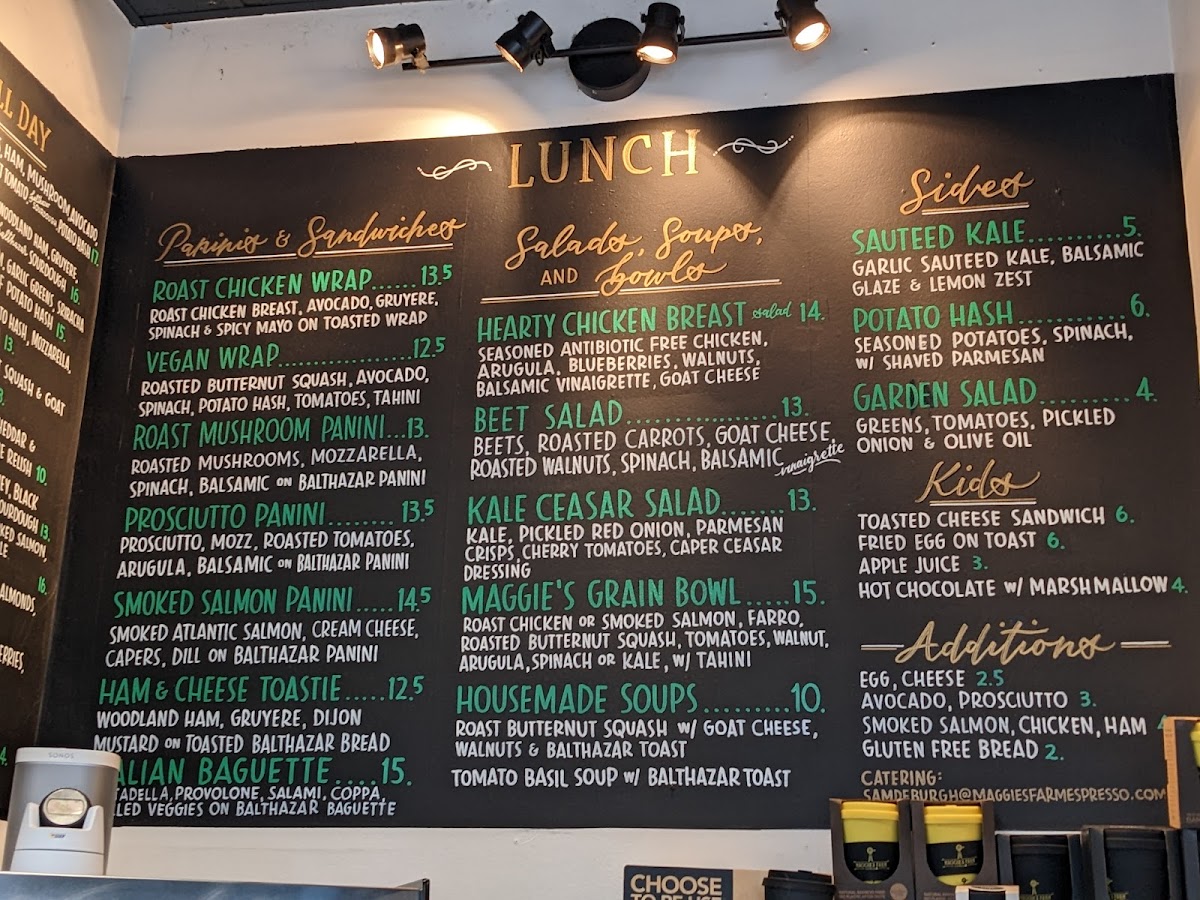 LL DAY
HAM, MUSHROOM, AVOCADO
TOMATO POTATO HASH 17.
WOODLAND HAM, GRUYERE,
SOURDOUGH 16.
GARLIC GREENS, SRIRACHA
POTATO HASH 15.
HASH, MOZZARELLA,
13.
SQUASH & GOAT
CHEDDAR &
RELISH 10.
BLACK
SOURDOUGH 13.
SMOKED SALMON,
16.
ALMONDS,
LUNCH
Paninis & Sandwiches
ROAST CHICKEN WRAP......13.5
ROAST CHICKEN BREAST, AVOCADO, GRUYERE,
SPINACH & SPICY MAYO ON TOASTED WRAP
VEGAN WRAP................12.5
ROASTED BUTTERNUT SQUASH, AVOCADO,
SPINACH, POTATO HASH, TOMATOES, TAHINI
ROAST MUSHROOM PANINI...13.
ROASTED MUSHROOMS, MOZZARELLA,
SPINACH, BALSAMIC ON BALTHAZAR PANINI
PROSCIUTTO PANINI........13.5
PROSCIUTTO, MOZZ, ROASTED TOMATOES,
ARUGULA, BALSAMIC ON BALTHAZAR PANINI
SMOKED SALMON PANINI.....14.5
SMOKED ATLANTIC SALMON, CREAM CHEESE,
CAPERS, DILL ON BALTHAZAR PANINI
HAM & CHEESE TOASTIE.....12.5
WOODLAND HAM, GRUYERE, DIJON
MUSTARD ON TOASTED BALTHAZAR BREAD
ALIAN BAGUETTE....15.
TADELLA, PROVOLONE, SALAMI, COPPA,
LED VEGGIES ON BALTHAZAR BAGUETTE
Salads, Soups,
AND Bowls
HEARTY CHICKEN BREAST salad 14.
SEASONED ANTIBIOTIC FREE CHICKEN,
ARUGULA, BLUEBERRIES, WALNUTS,
BALSAMIC VINAIGRETTE, GOAT CHEESE
BEET SALAD..................13.
BEETS, ROASTED CARROTS, GOAT CHEESE,
ROASTED WALNUTS, SPINACH, BALSAMIC vinaigrette
KALE CEASAR SALAD.......13.
KALE, PICKLED RED ONION, PARMESAN
CRISPS, CHERRY TOMATOES, CAPER CEASAR
DRESSING
MAGGIE'S GRAIN BOWL.....15.
ROAST CHICKEN OR SMOKED SALMON, FARRO,
ROASTED BUTTERNUT SQUASH, TOMATOES, WALNUT,
ARUGULA, SPINACH OR KALE, W/ TAHINI
HOUSEMADE SOUPS.........10.
ROAST BUTTERNUT SQUASH W/ GOAT CHEESE,
WALNUTS & BALTHAZAR TOAST
TOMATO BASIL SOUP W/ BALTHAZAR TOAST
Sides
SAUTEED KALE..........5.
GARLIC SAUTEED KALE, BALSAMIC
GLAZE & LEMON ZEST
POTATO HASH............6.
SEASONED POTATOES, SPINACH,
W/ SHAVED PARMESAN
GARDEN SALAD.........4.
GREENS, TOMATOES, PICKLED
ONION & OLIVE OIL
Kids
TOASTED CHEESE SANDWICH 6.
FRIED EGG ON TOAST 6.
APPLE JUICE 3.
HOT CHOCOLATE W/ MARSHMALLOW 4.
Additions
EGG, CHEESE 2.5
AVOCADO, PROSCIUTTO 3.
SMOKED SALMON, CHICKEN, HAM
GLUTEN FREE BREAD 2.
CATERING:
SAMDEBURGH@MAGGIESFARMESPRESSO.COM
SONOS
CHOOSE
TO RE USE